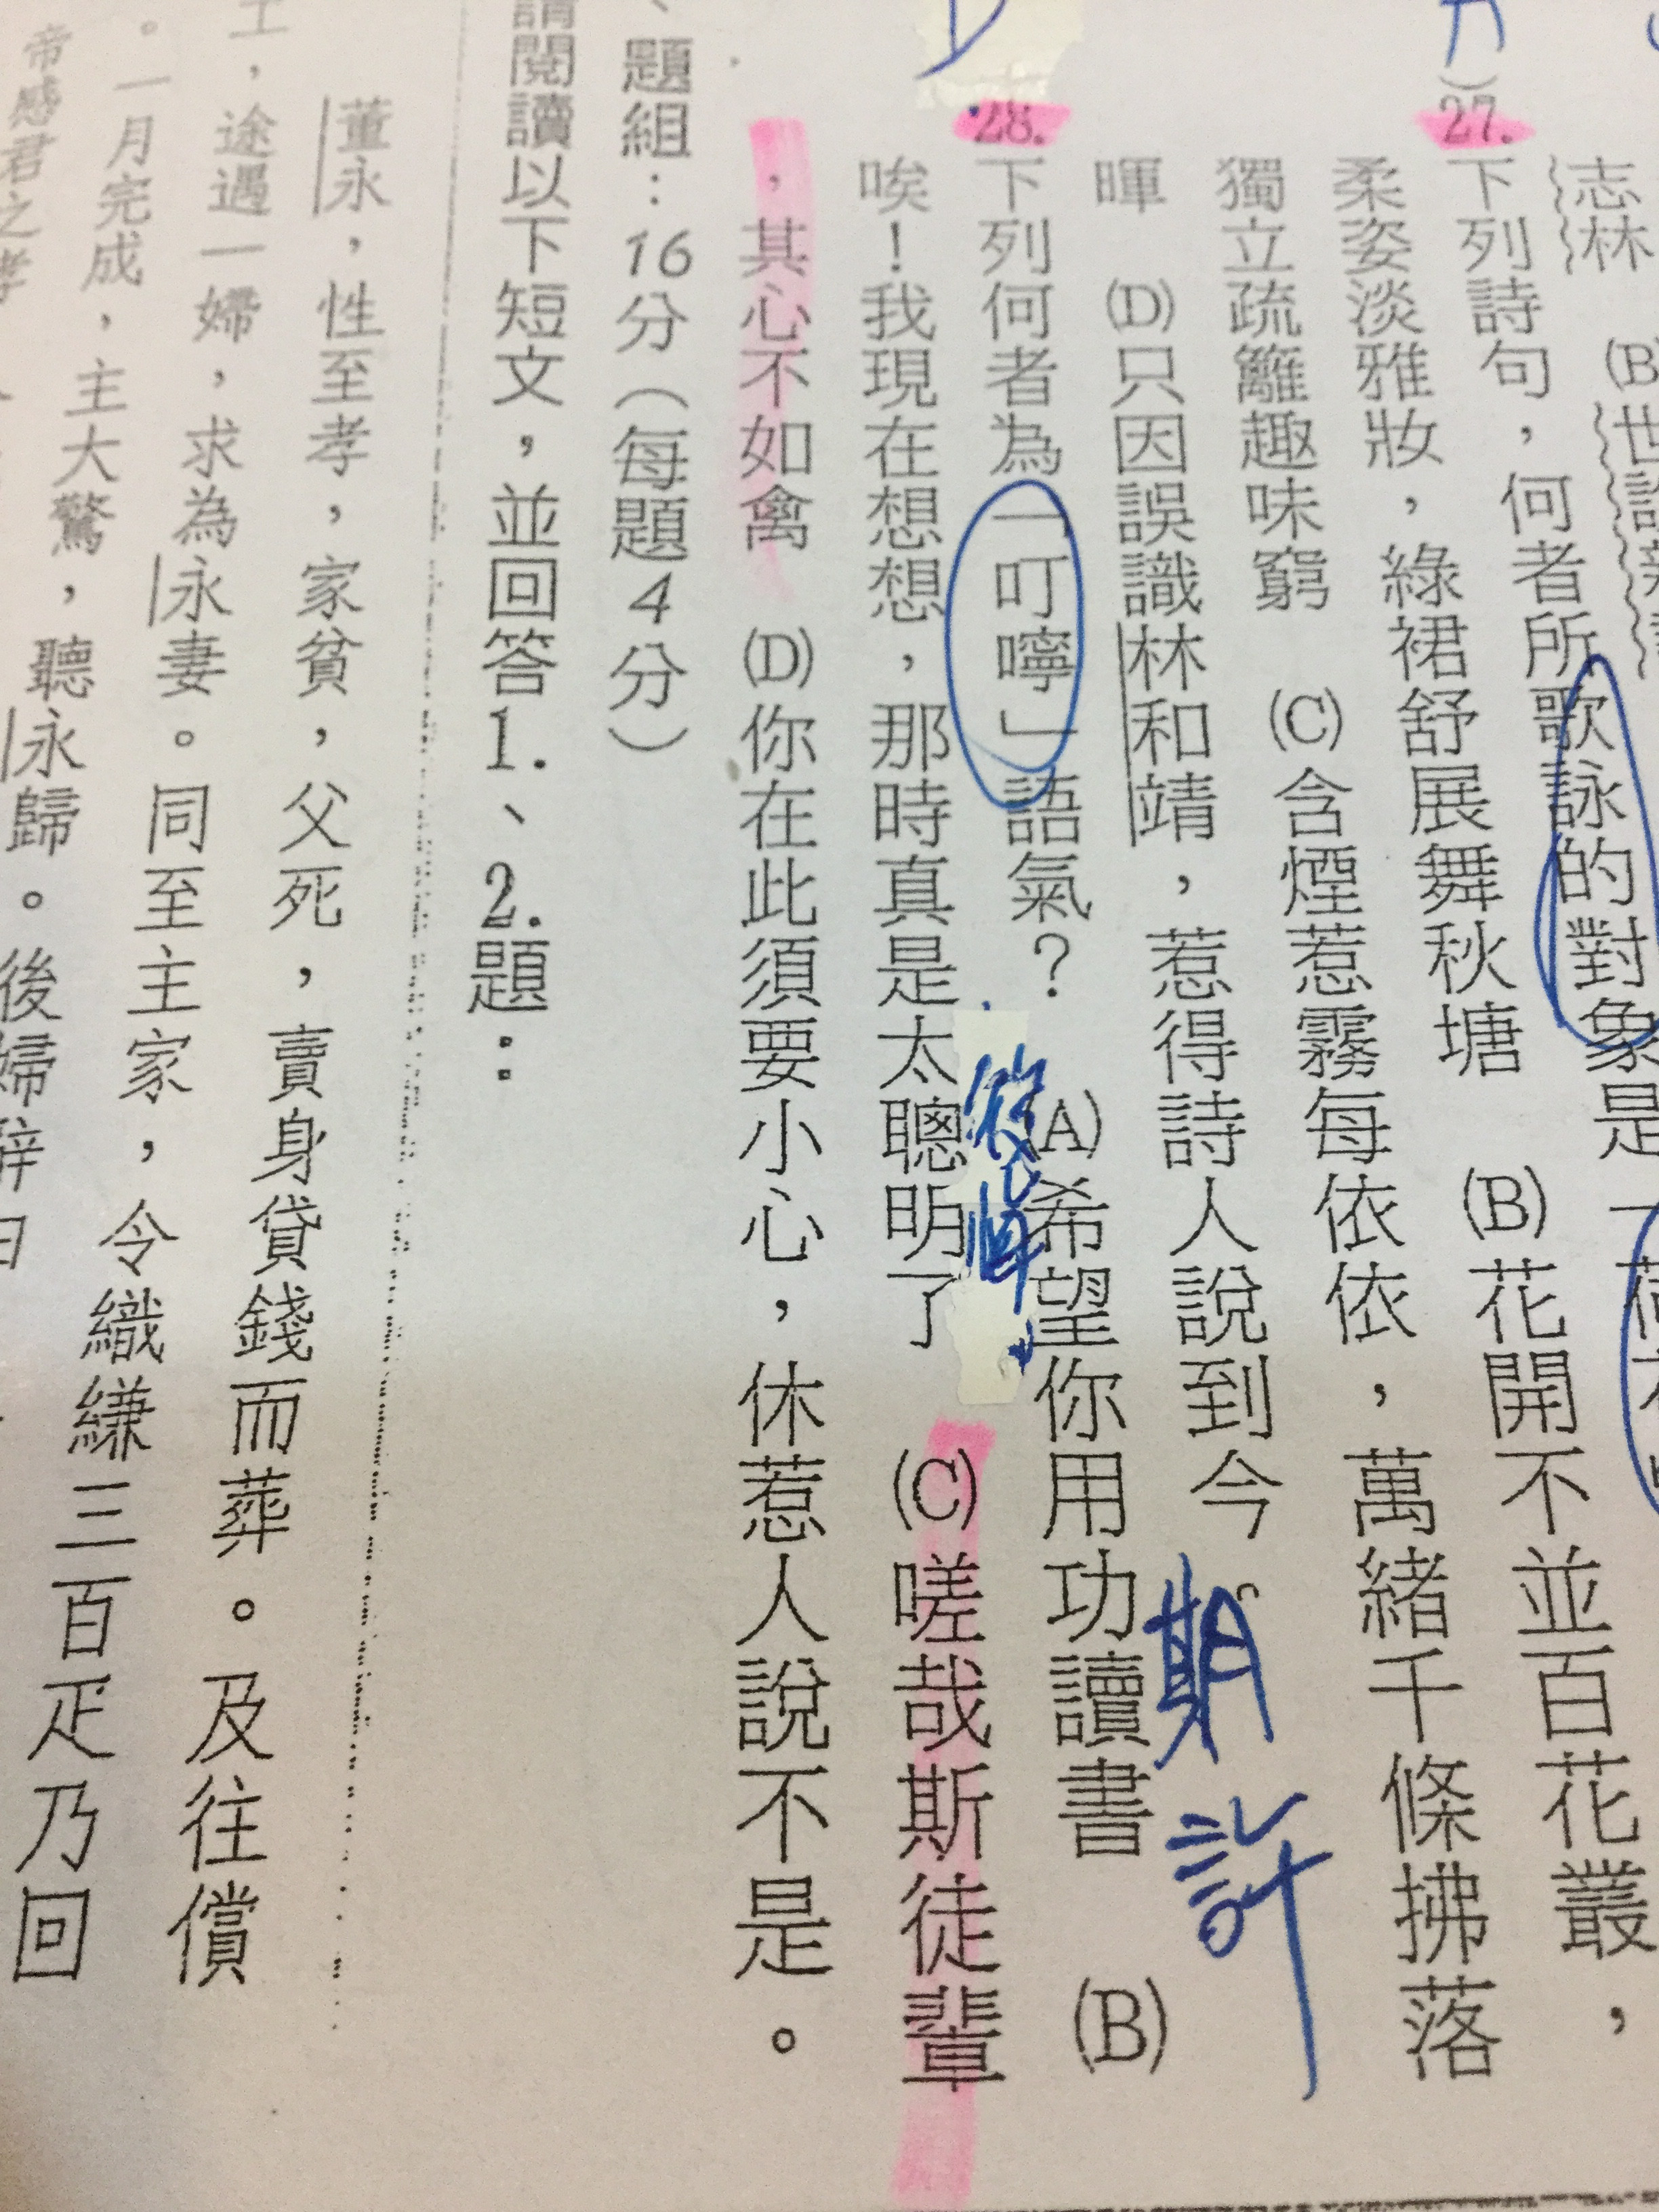 志林 (B)世說
27.下列詩句，何者所歌詠的對象是
柔姿淡雅妝，綠裙舒展舞秋塘 (B)花開不並百花叢，
獨立疏籬趣味窮 (C)含煙惹霧每依依，萬緒千條拂落
暉 (D)只因誤識林和靖，惹得詩人說到今。
期許
28.下列何者為「叮嚀」語氣？ (A)希望你用功讀書 (B)
唉！我現在想想，那時真是太聰明了 (C)嗟哉斯徒輩
，其心不如禽 (D)你在此須要小心，休惹人說不是。
、題組：16分（每題4分）
請閱讀以下短文，並回答1.、2.題：
董永，性至孝，家貧，父死，賣身貸錢而葬。及往償
，途遇一婦，求為永妻。同至主家，令織縑三百疋乃回
。一月完成，主大驚，聽永歸。後婦辭曰
帝感君之孝